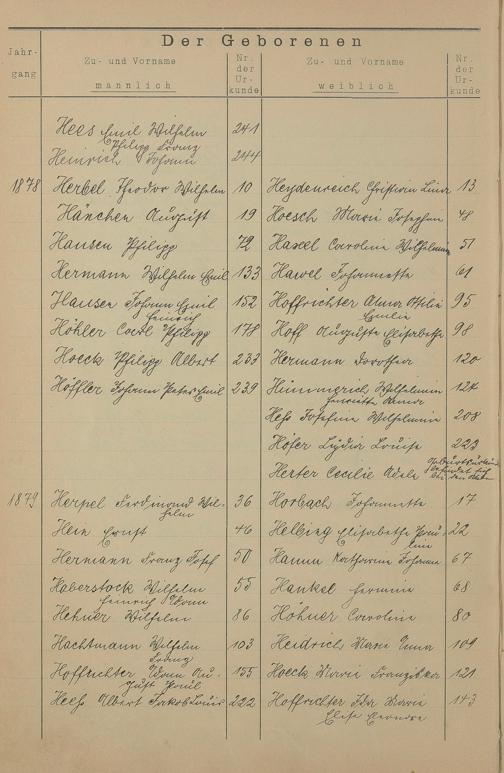 Der Geborenen
Jahr-
gang
Zu- und Vorname
männlich
Nr.
der
Ur-
kunde
Zu- und Vorname
weiblich
Nr.
der
Ur-
kunde
Hees Emil Wilhelm 241
Philipp Franz
Heinrich Johann 244
1878 Herbel Theodor Wilhelm 10 Heydenreich Christian 13
Hänchen August 19 Hoesch Maria Josephin 48
Hansen Philipp 72 Hassel Carolina Wilhelmin 51
Hermann Wilhelm Emil 133 Hawel Johannette 61
Hansen Johann Emil 152 Hoffrichter Anna Ottilie 95
Heinrich Emilie
Höhler Carl Philipp 178 Hoff Auguste Elisabetha 98
Hoeck Philipp Albert 233 Hermann Dorothea 120
Höffler Johann Peter Emil 239 Himmerich Wilhelmin 124
Henriette Anna
Hess Josefine Wilhelmine 208
Höfer Lydia Louise 223
Herter Cecilie Adele
1879 Herpel Ferdinand Wil- 36 Horbach Johannette 17
helm
Hein Ernst 46 Helbing Elisabetha Pau- 22
line
Hermann Franz Josef 50 Hamm Katharina Johanna 67
Haberstock Wilhelm 55 Hankel Hermine 68
Heinrich Adam
Hehner Wilhelm 86 Höhner Carolina 80
Hachtmann Wilhelm 103 Heidrich Maria Anna 109
Franz
Hoffrichter Adam Au- 155 Hoeck Maria Franziska 121
gust Paul
Hess Albert Jakob Louis 222 Hoffrichter Ida Maria 143
Elise